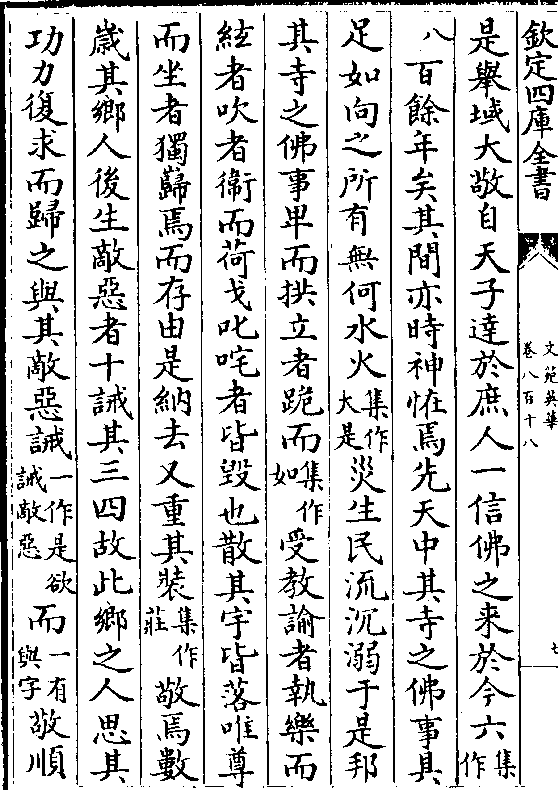 欽定四庫全書
文苑英華
卷八百十八
七
是舉域大敬自天子達於庶人一信佛之来於今六集作
八百餘年矣其間亦時神恠焉先天中其寺之佛事具
足如向之所有無何水火集作大是災生民流沉溺于是邦
其寺之佛事卑而拱立者跪而集作如受教諭者執樂而
絃者吹者衛而荷戈叱咤者皆毀也散其宇皆落唯尊
而坐者獨歸焉而存由是納去又重其裝集作莊敬焉數
歲其鄉人後生敵惡者十誡其三四故此鄉之人思其
功力復求而歸之與其敵惡誡一作是欲誡敵惡而一有與字敬順